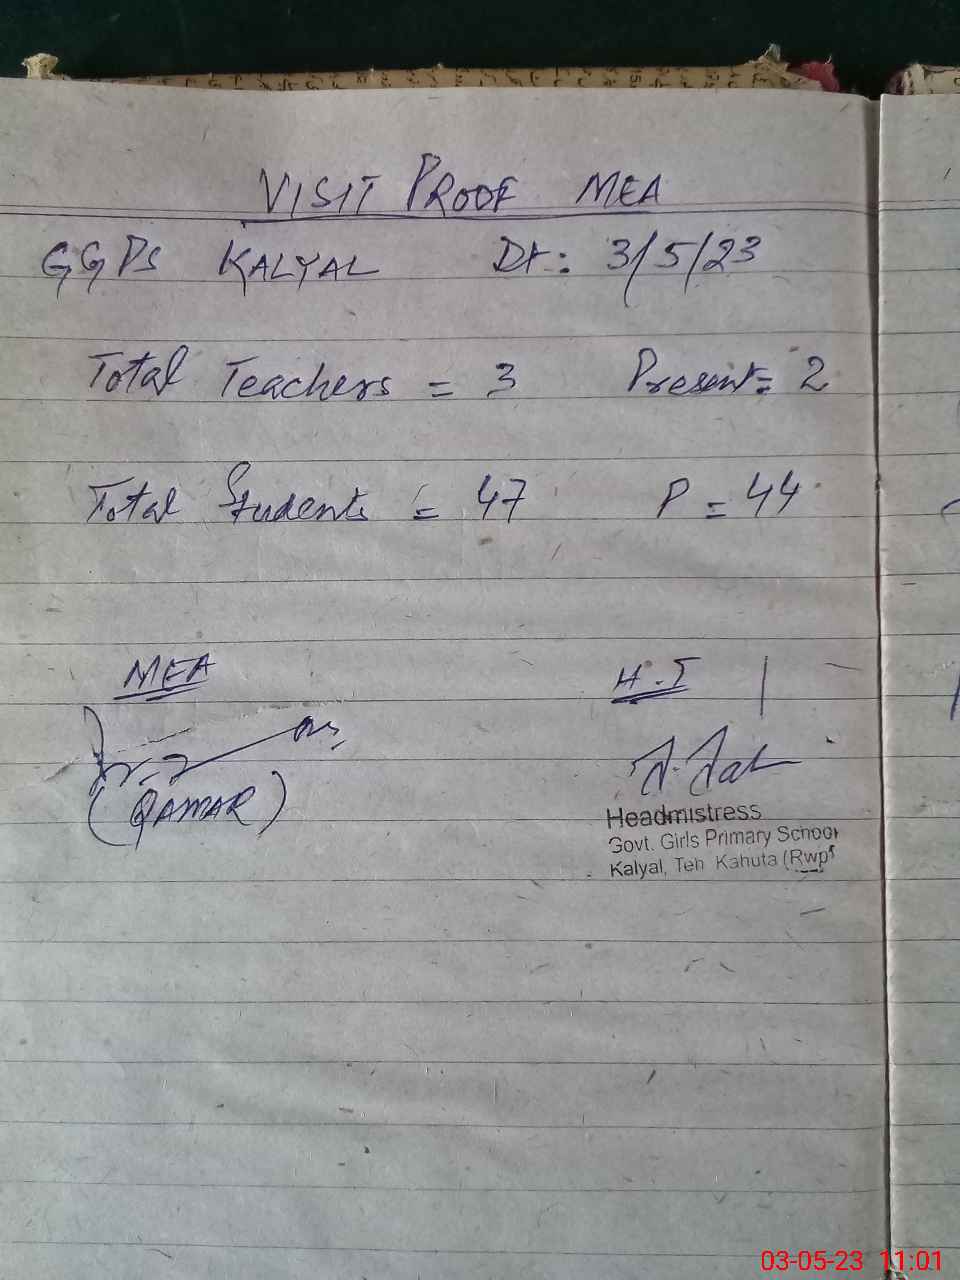 VISIT PROOF MEA
GGPS KALYAL Dt: 3/5/23
Total Teachers = 3 Present = 2
Total Students = 47 P = 44
MEA H.T
(QAMAR)
Headmistress
Govt. Girls Primary School
Kalyal, Teh Kahuta (Rwp)
03-05-23 11:01